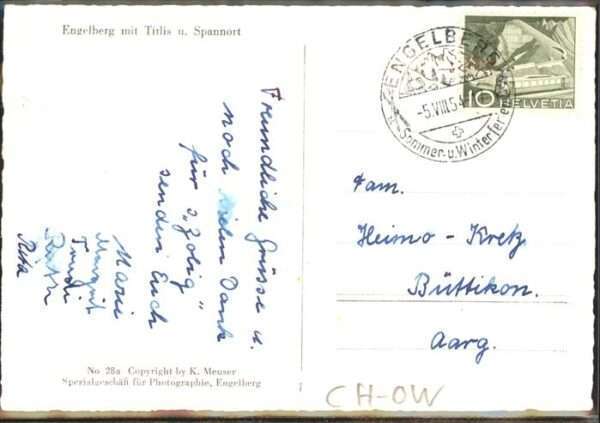 Engelberg mit Titlis u. Spannort
Freundliche Grüsse u.
noch vielen Dank
für s'„Zobig"
senden Euch
Marie
Margrit
Trudi
Ruth
Rita
No 28a Copyright by K. Meuser
Spezialgeschäft für Photographie, Engelberg
ENGELBERG
-5.VIII.54
Sommer- u. Winterferien
10 HELVETIA
Fam.
Heimo-Kretz
Büttikon.
Aarg.
CH-OW